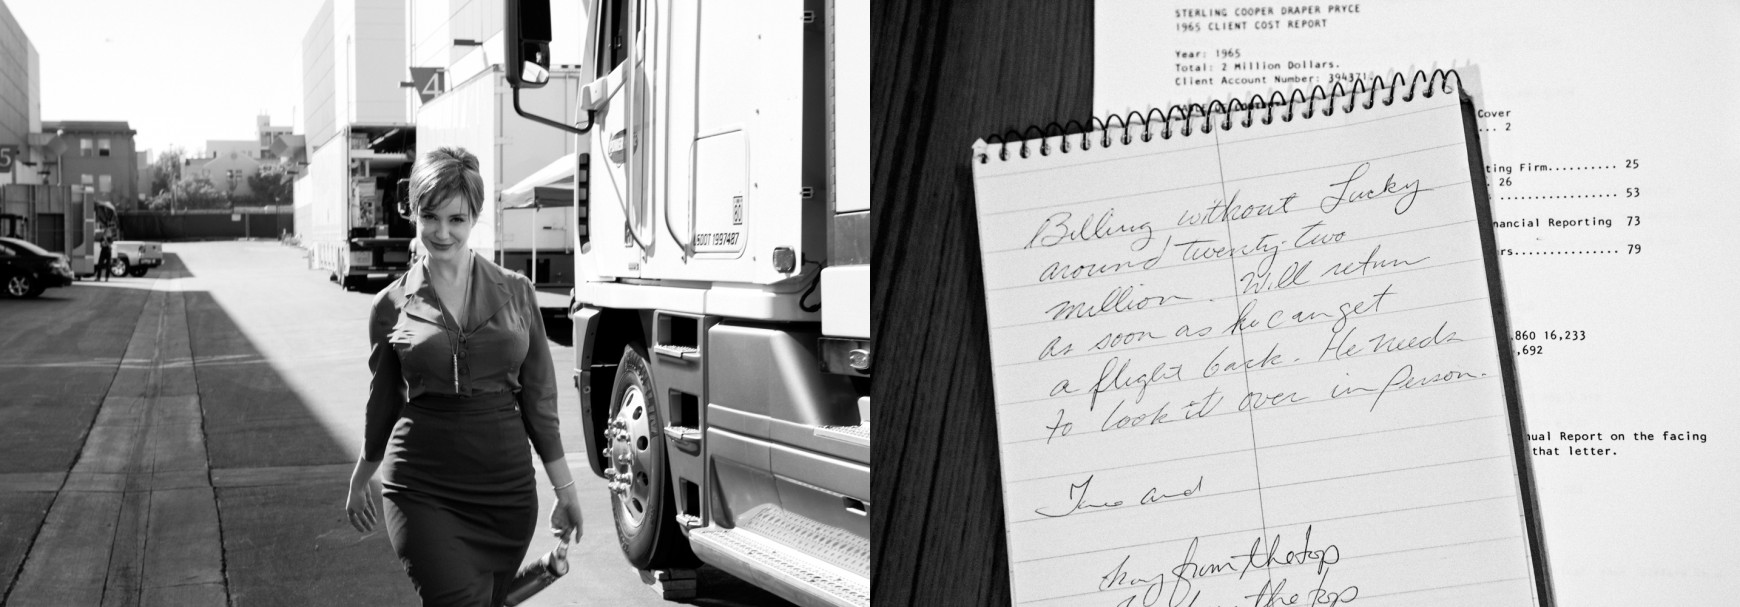 5
4
USDOT 1997487
STERLING COOPER DRAPER PRYCE
1965 CLIENT COST REPORT
Year: 1965
Total: 2 Million Dollars.
Client Account Number: 394371
Cover
... 2
ting Firm.......... 25
. 26
.............. 53
nancial Reporting 73
rs............... 79
.860 16,233
,692
nual Report on the facing
that letter.
Billing without Lucky
around twenty-two
million. Will return
as soon as he can get
a flight back. He needs
to look it over in person.
and
from the top
the top